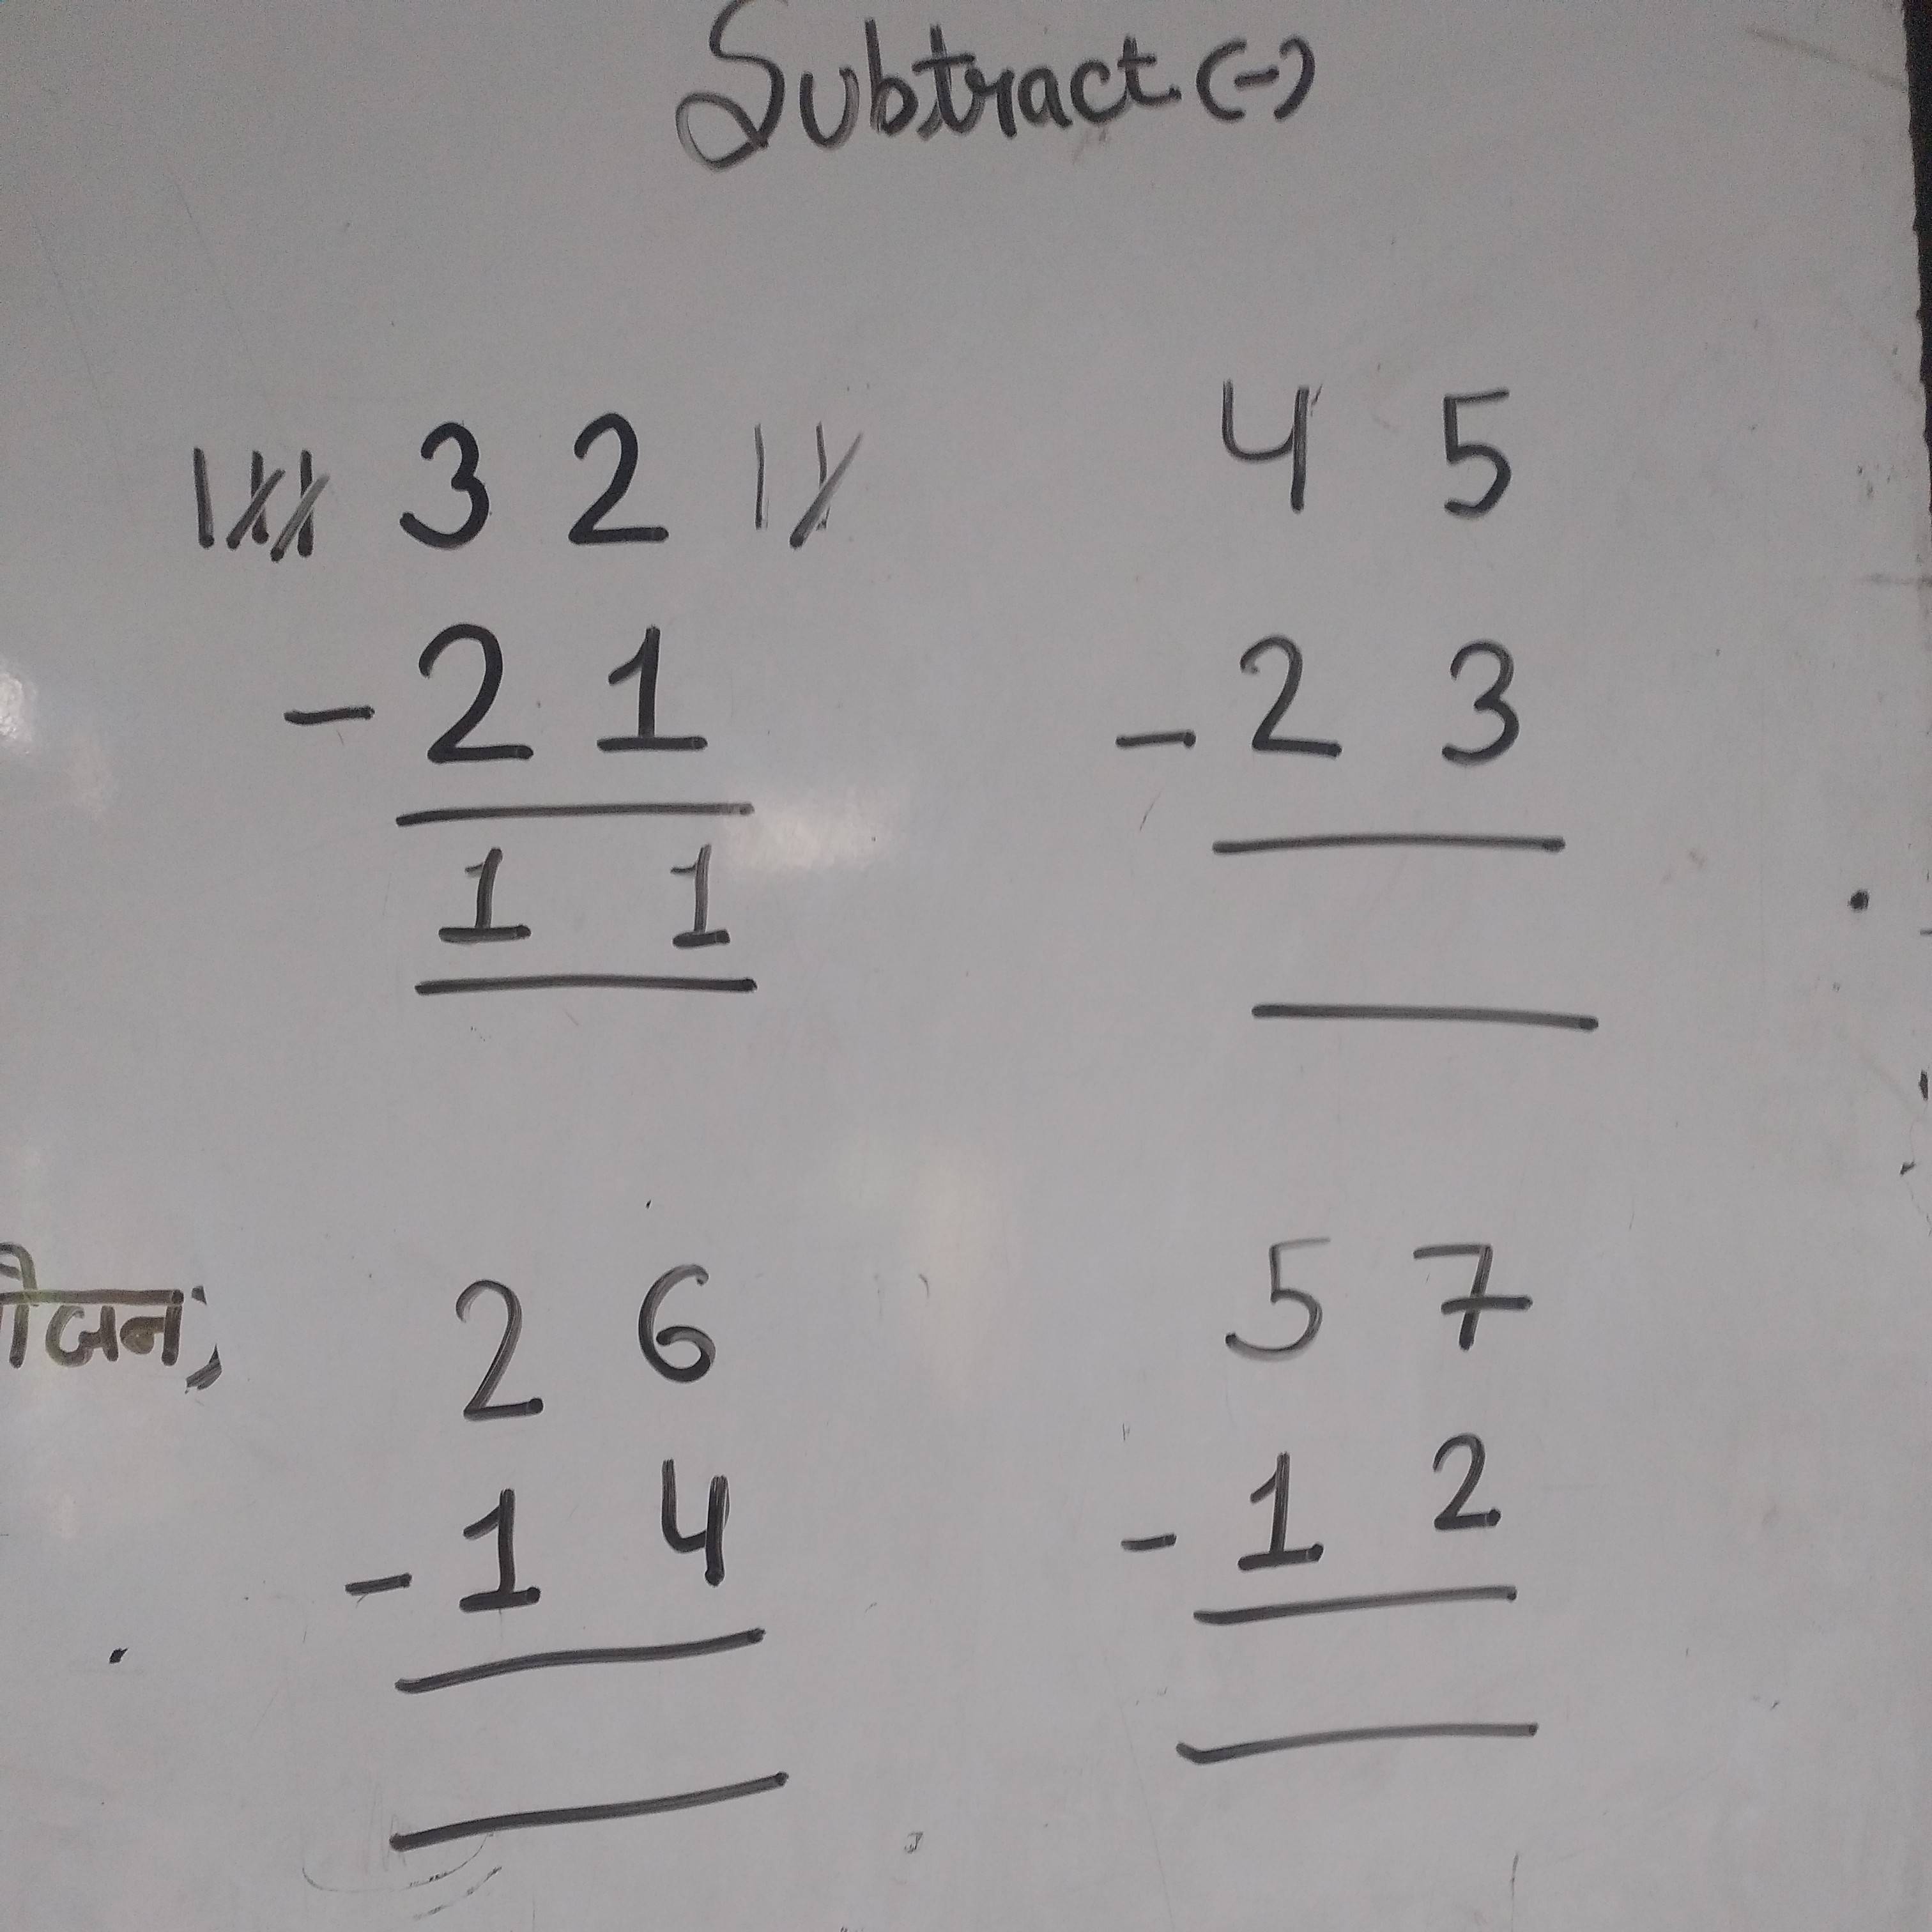 Subtract (-)
3 2
- 2 1
1 1
4 5
- 2 3
2 6
- 1 4
5 7
- 1 2